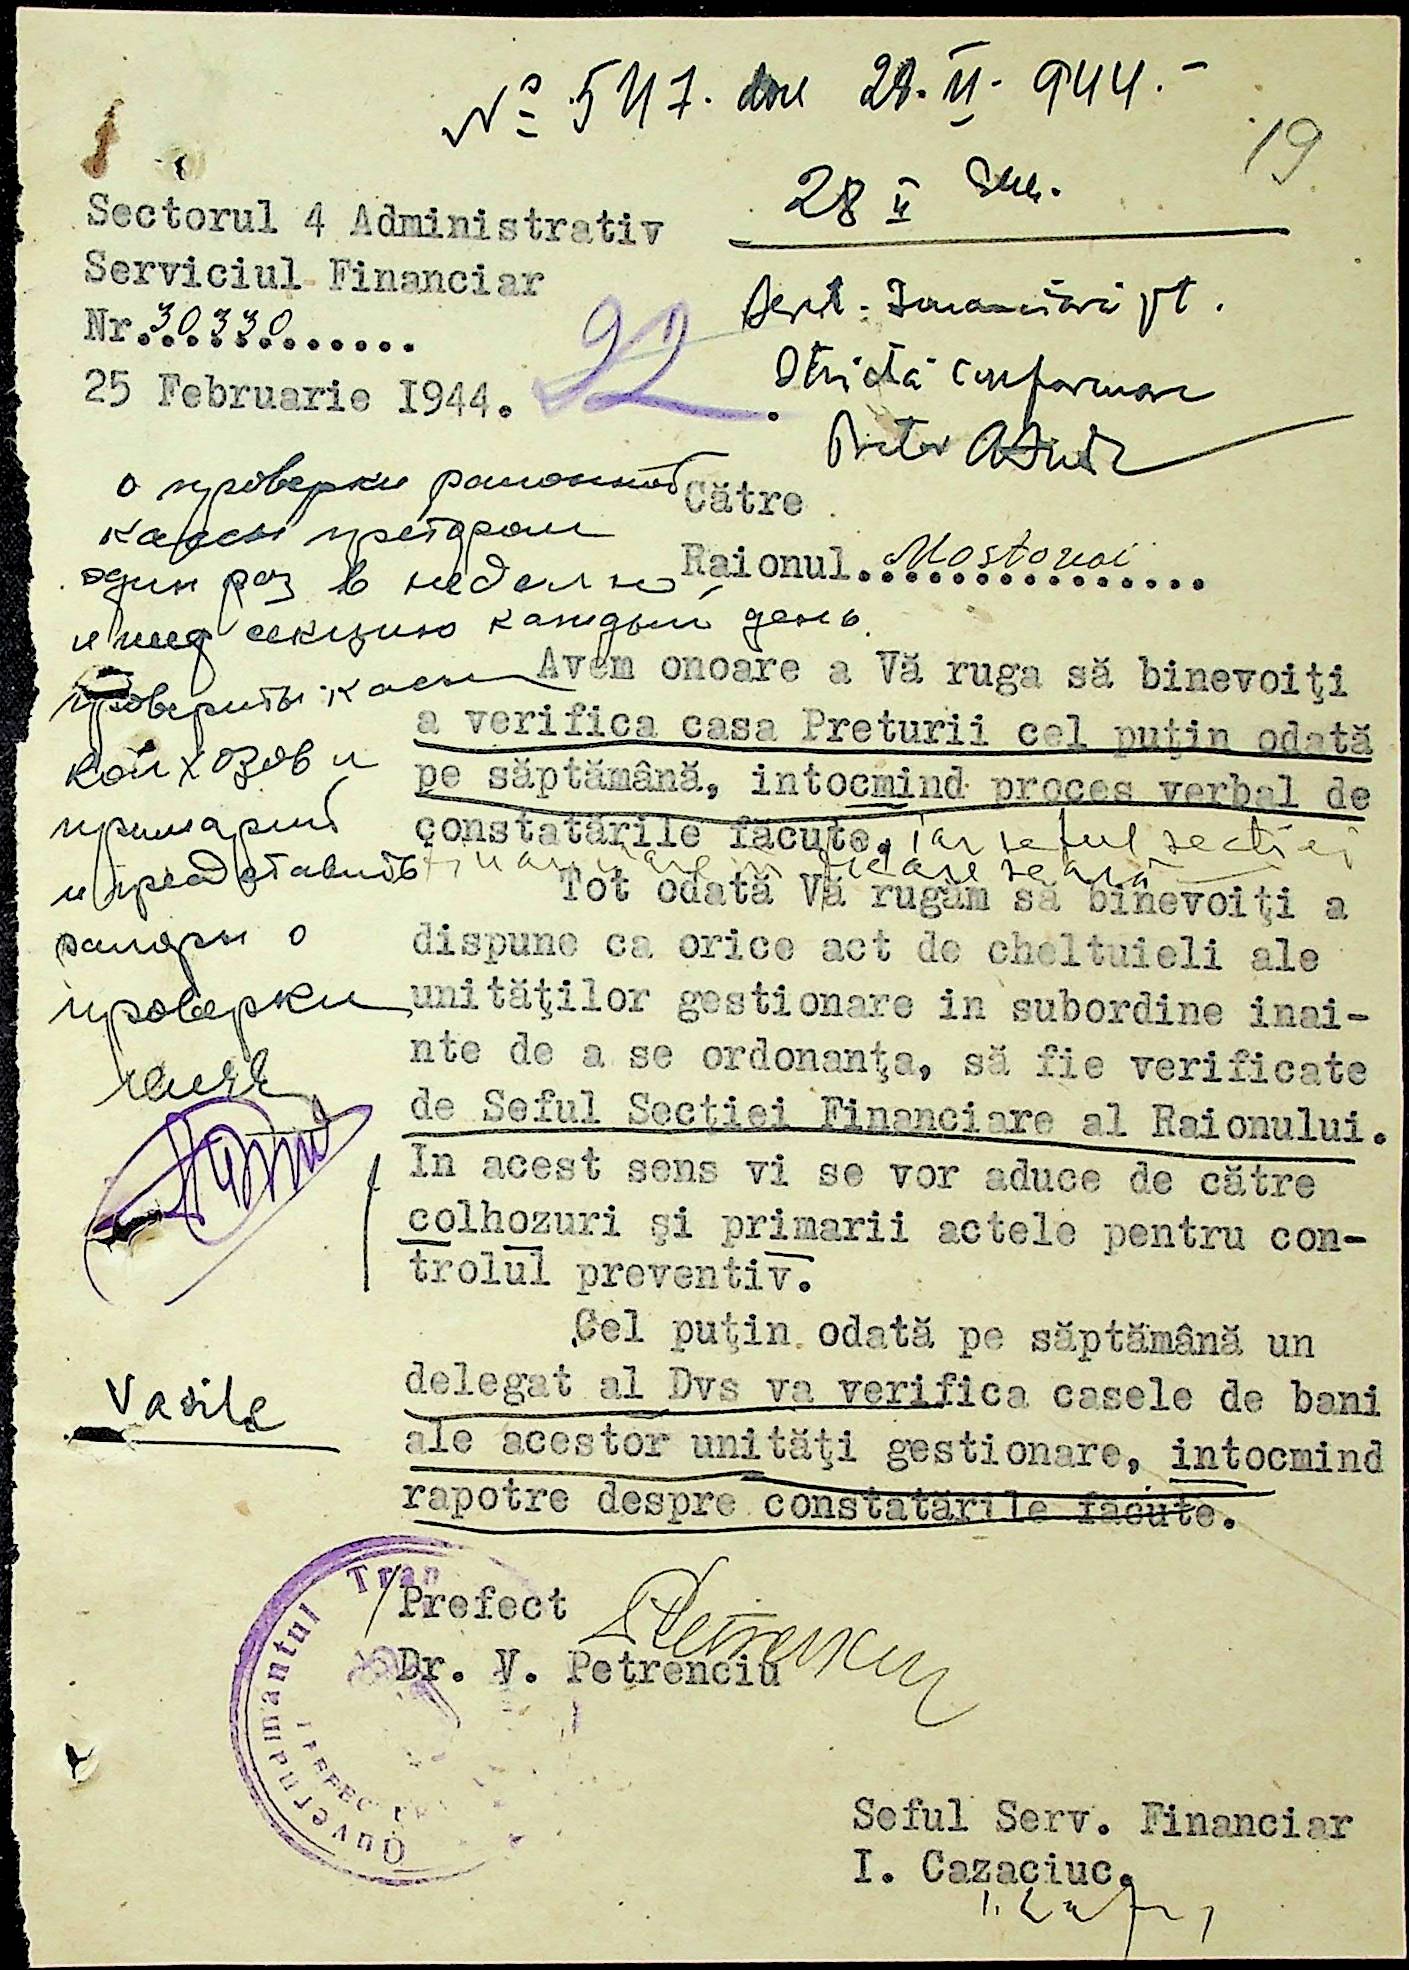 № 547. din 28.II.944.-
19
28 II
Sectorul 4 Administrativ
Serviciul Financiar
Nr.30330............
25 Februarie I944.
22
Serv. Financiar pt.
Strictă conformare
Pretor
о проверки районной
кассы претором
один раз в неделю
и шеф секцию каждый день
проверить кассы
колхозов и
примарий
и представить
рапорты о
проверки
Către
Raionul. Mostovoi
Avem onoare a Vă ruga să binevoiţi
a verifica casa Preturii cel puţin odată
pe săptămână, intocmind proces verbal de
constatările făcute, iar seful sectiei
financiare in fiecare seară
Tot odată Vă rugăm să binevoiţi a
dispune ca orice act de cheltuieli ale
unităţilor gestionare in subordine inai-
nte de a se ordonanţa, să fie verificate
de Seful Secţiei Financiare al Raionului.
In acest sens vi se vor aduce de către
colhozuri şi primarii actele pentru con-
trolul preventiv.
Cel puţin odată pe săptămână un
delegat al Dvs va verifica casele de bani
ale acestor unităţi gestionare, intocmind
rapotre despre constatările făcute.
Vasile
Guvernământul Tran
Prefect
Dr. V. Petrenciu
Seful Serv. Financiar
I. Cazaciuc.